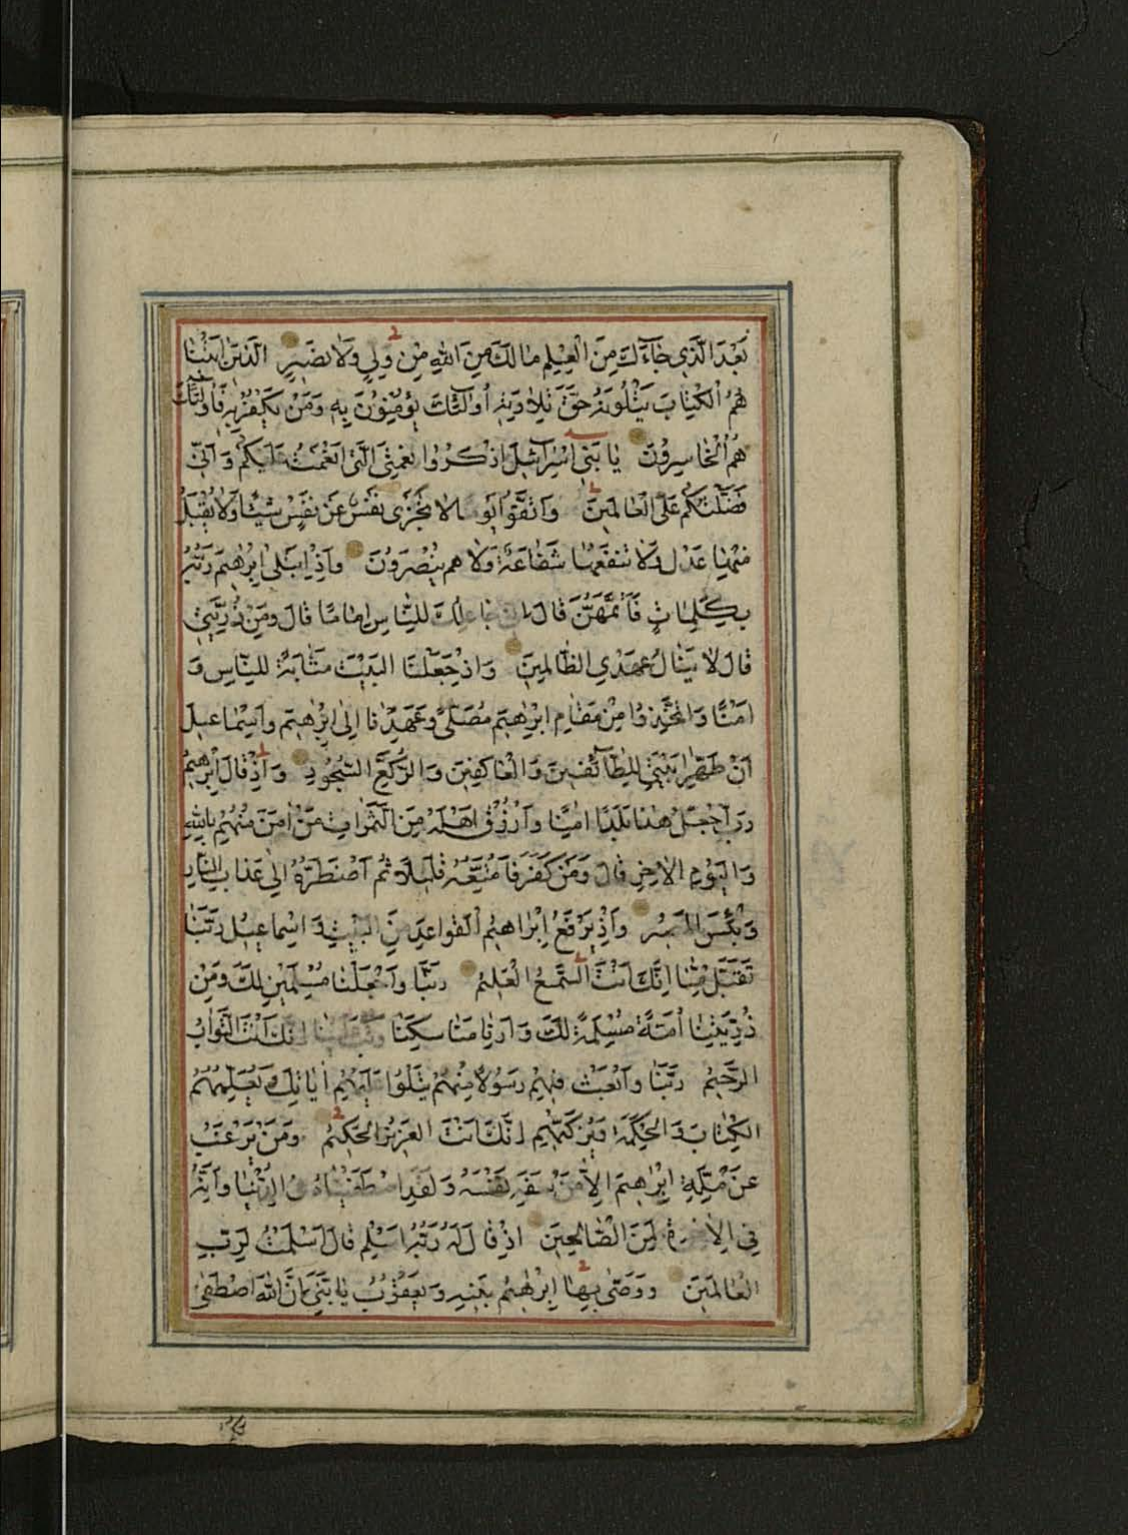 بَعْدَ الَّذِي جَاءَكَ مِنَ الْعِلْمِ مَا لَكَ مِنَ اللهِ مِنْ وَلِيٍّ وَلَا نَصِيرٍ الَّذِينَ اتَيْنَا
هُمُ الْكِتَابَ يَتْلُونَهُ حَقَّ تِلَاوَتِهِ أُولَئِكَ يُؤْمِنُونَ بِهِ وَمَنْ يَكْفُرْ بِهِ فَأُولَئِكَ
هُمُ الْخَاسِرُونَ يَا بَنِي اسْرَائِيلَ اذْكُرُوا نِعْمَتِيَ الَّتِي انْعَمْتُ عَلَيْكُمْ وَانِّي
فَضَّلْتُكُمْ عَلَى الْعَالَمِينَ وَاتَّقُوا يَوْمًا لَا تَجْزِي نَفْسٌ عَنْ نَفْسٍ شَيْئًا وَلَا يُقْبَلُ
مِنْهَا عَدْلٌ وَلَا تَنْفَعُهَا شَفَاعَةٌ وَلَا هُمْ يُنْصَرُونَ وَاِذِ ابْتَلَى اِبْرٰهِيمَ رَبُّهُ
بِكَلِمَاتٍ فَأَتَمَّهُنَّ قَالَ اِنِّي جَاعِلُكَ لِلنَّاسِ اِمَامًا قَالَ وَمِنْ ذُرِّيَّتِي
قَالَ لَا يَنَالُ عَهْدِي الظَّالِمِينَ وَاِذْ جَعَلْنَا الْبَيْتَ مَثَابَةً لِلنَّاسِ وَ
اَمْنًا وَاتَّخِذُوا مِنْ مَقَامِ ابْرٰهِيمَ مُصَلًّى وَعَهِدْنَا اِلَى اِبْرٰهِيمَ وَاِسْمَاعِيلَ
اَنْ طَهِّرَا بَيْتِيَ لِلطَّائِفِينَ وَالْعَاكِفِينَ وَالرُّكَّعِ السُّجُودِ وَاِذْ قَالَ اِبْرٰهِيمُ
رَبِّ اجْعَلْ هٰذَا بَلَدًا امِنًا وَارْزُقْ اَهْلَهُ مِنَ الثَّمَرَاتِ مَنْ اٰمَنَ مِنْهُمْ بِاللهِ
وَالْيَوْمِ الْاٰخِرِ قَالَ وَمَنْ كَفَرَ فَاُمَتِّعُهُ قَلِيلًا ثُمَّ اَضْطَرُّهُ اِلَى عَذَابِ النَّارِ
وَبِئْسَ الْمَصِيرُ وَاِذْ يَرْفَعُ اِبْرَاهِيمُ الْقَوَاعِدَ مِنَ الْبَيْتِ وَاِسْمَاعِيلُ رَبَّنَا
تَقَبَّلْ مِنَّا اِنَّكَ اَنْتَ السَّمِيعُ الْعَلِيمُ رَبَّنَا وَاجْعَلْنَا مُسْلِمَيْنِ لَكَ وَمِنْ
ذُرِّيَّتِنَا اُمَّةً مُسْلِمَةً لَكَ وَاَرِنَا مَنَاسِكَنَا وَتُبْ عَلَيْنَا اِنَّكَ اَنْتَ التَّوَّابُ
الرَّحِيمُ رَبَّنَا وَابْعَثْ فِيهِمْ رَسُولًا مِنْهُمْ يَتْلُوا عَلَيْهِمْ اٰيَاتِكَ وَيُعَلِّمُهُمُ
الْكِتَابَ وَالْحِكْمَةَ وَيُزَكِّيهِمْ اِنَّكَ اَنْتَ الْعَزِيزُ الْحَكِيمُ وَمَنْ يَرْغَبُ
عَنْ مِلَّةِ اِبْرٰهِيمَ اِلَّا مَنْ سَفِهَ نَفْسَهُ وَلَقَدِ اصْطَفَيْنَاهُ فِي الدُّنْيَا وَاِنَّهُ
فِي الْاٰخِرَةِ لَمِنَ الصَّالِحِينَ اِذْ قَالَ لَهُ رَبُّهُ اَسْلِمْ قَالَ اَسْلَمْتُ لِرَبِّ
الْعَالَمِينَ وَوَصَّى بِهَا اِبْرٰهِيمُ بَنِيهِ وَيَعْقُوبُ يَا بَنِيَّ اِنَّ اللهَ اصْطَفَى